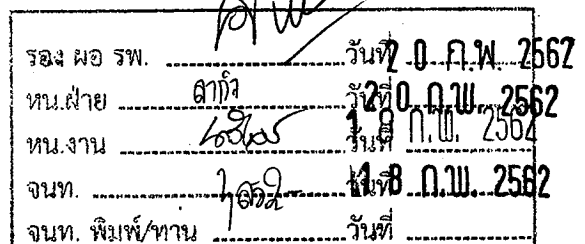 รอง ผอ รพ. วันที่ 20 ก.พ. 2562
หน.ฝ่าย วันที่ 20 ก.พ. 2562
หน.งาน วันที่ 18 ก.พ. 2562
จนท. วันที่ 18 ก.พ. 2562
จนท. พิมพ์/ทาน วันที่